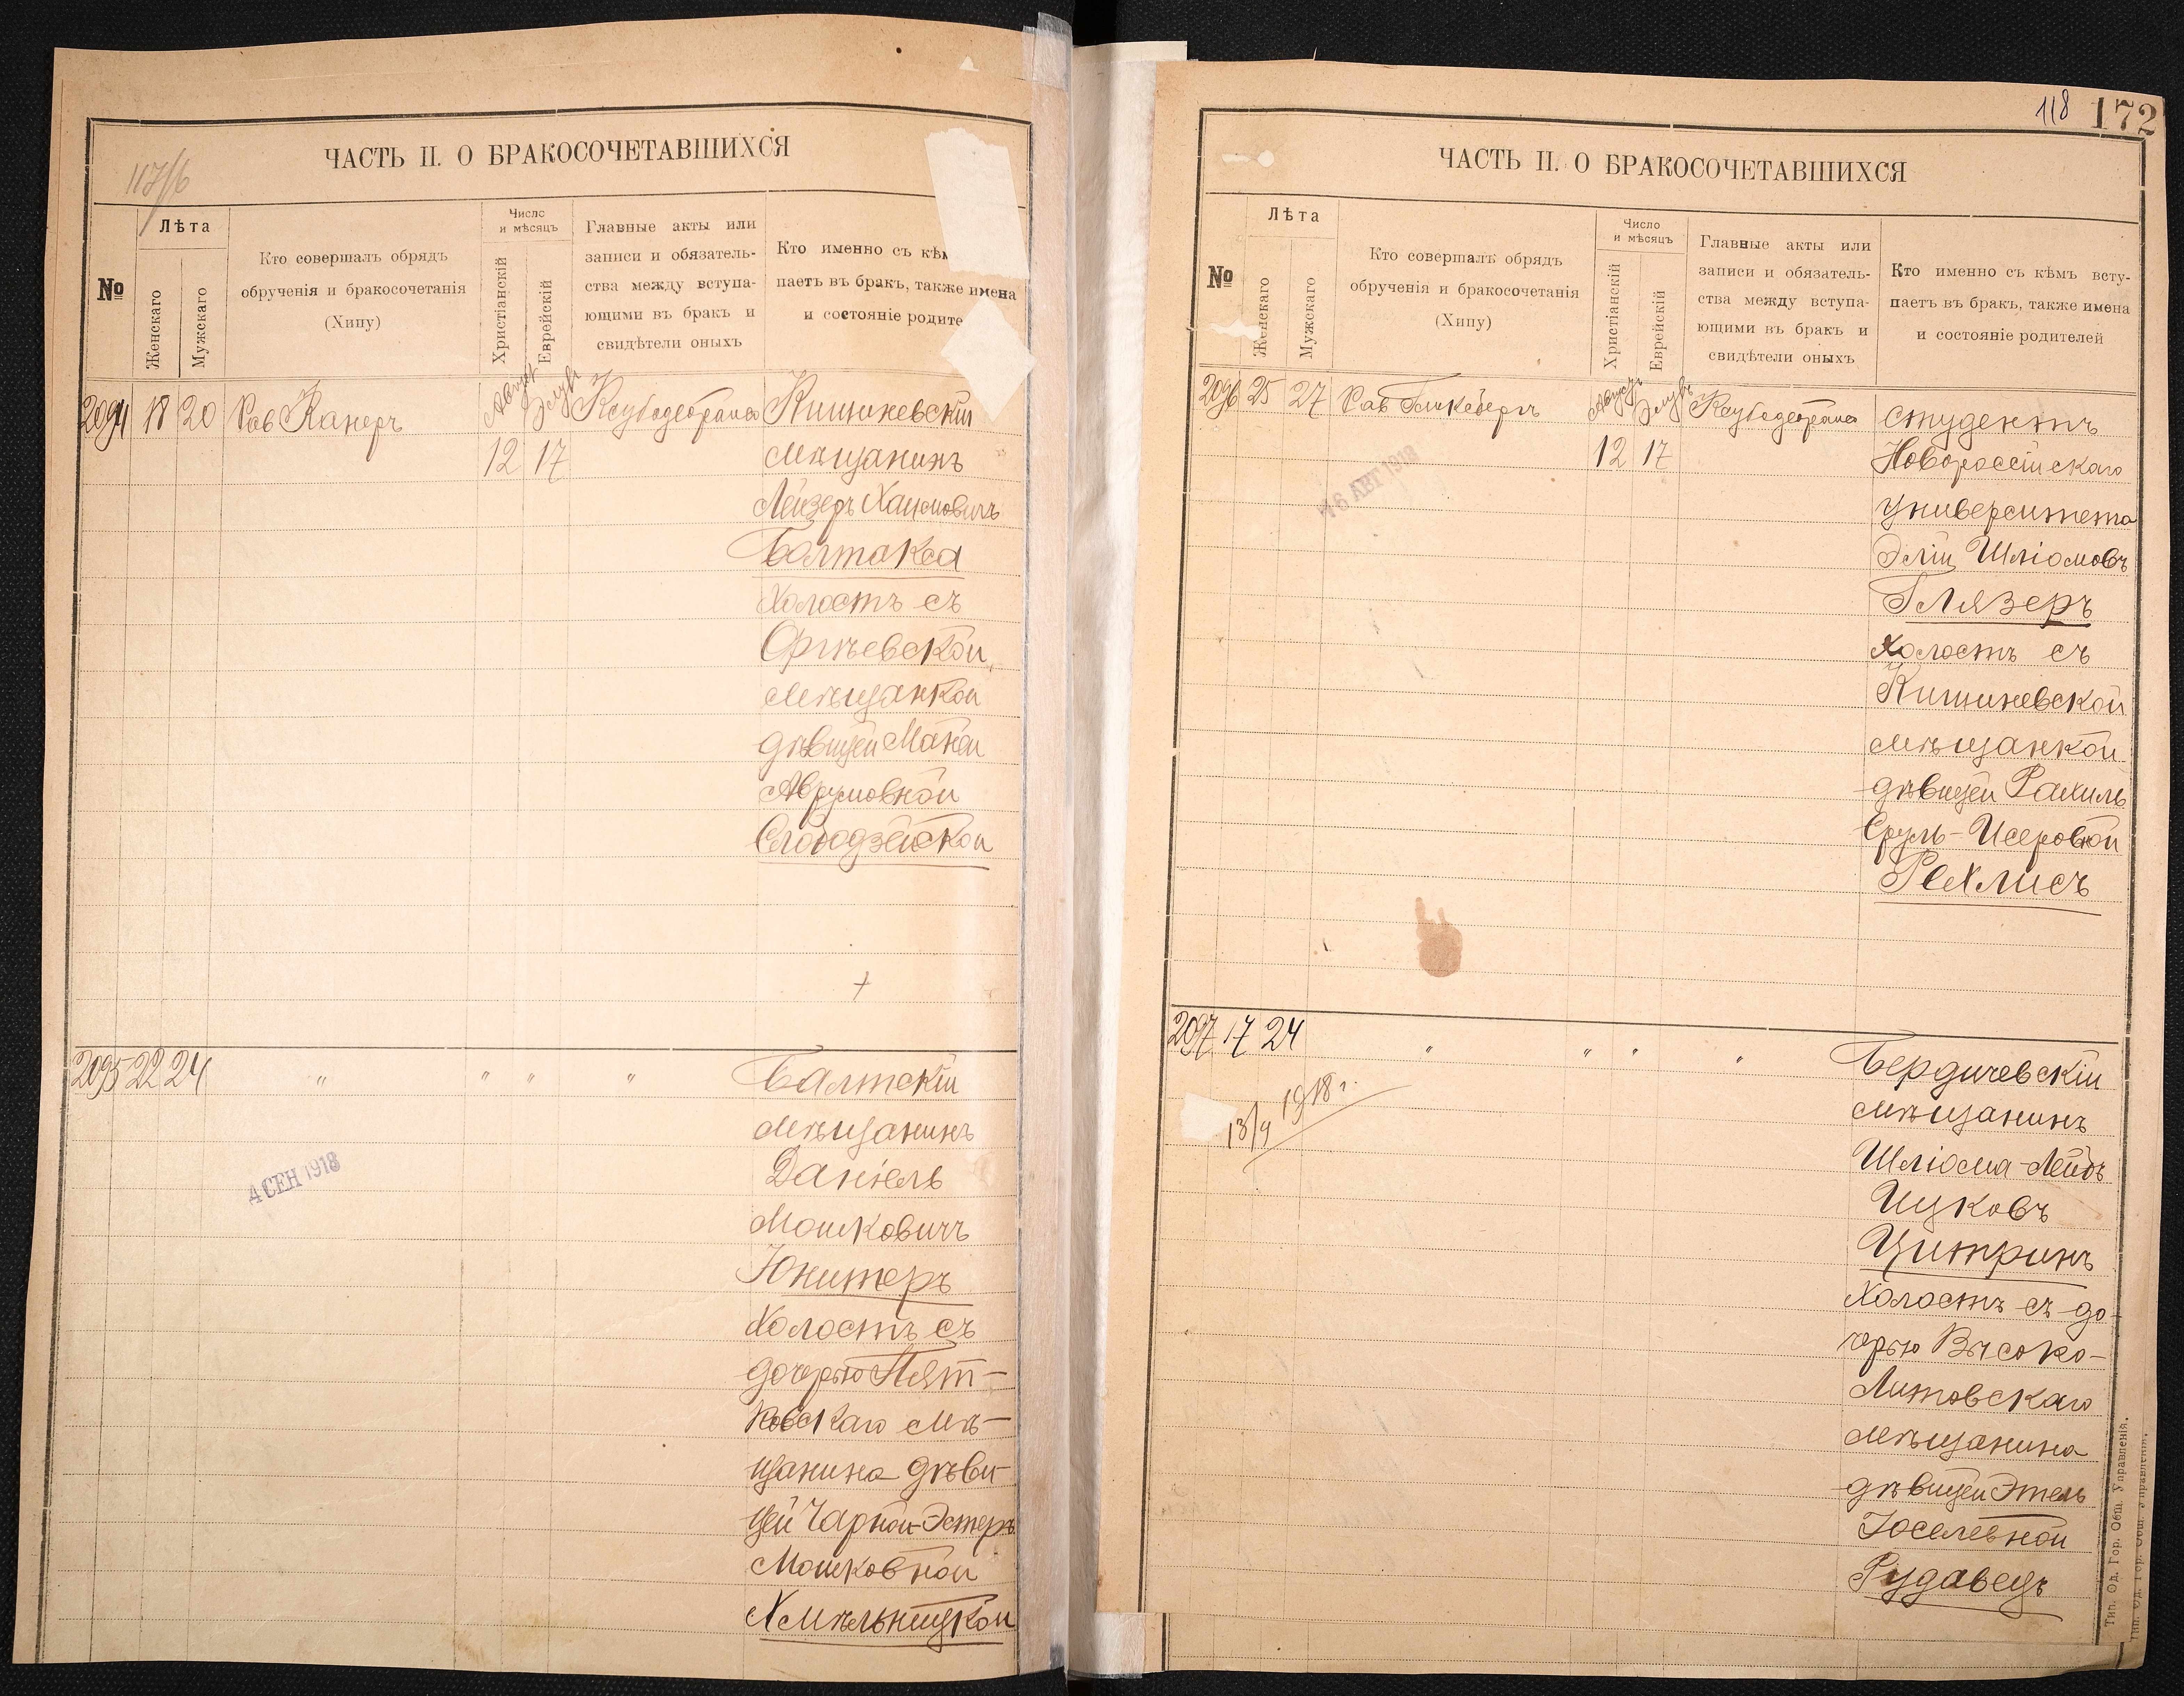 117/б
ЧАСТЬ II. О БРАКОСОЧЕТАВШИХСЯ
№
Лѣта
Женскаго
Мужскаго
Кто совершалъ обрядъ
обрученія и бракосочетанія
(Хипу)
Число
и мѣсяцъ
Христіанскій
Еврейскій
Главные акты или
записи и обязатель-
ства между вступа-
ющими въ бракъ и
свидѣтели оныхъ
Кто именно съ кѣм
паетъ въ бракъ, также имена
и состояніе родите
2094 18 20 Рав Канеръ
Август Элул
12 17
Кишиневскій
мѣщанинъ
Лейзеръ Хаимовичъ
Балтакса
Холостъ съ
Оргѣевской
мѣщанкой
дѣвицей Маней
Аврумовной
Слободзейской
2095 22 24 " " " "
4 СЕН 1918
Балтскій
мѣщанинъ
Даніель
Мошковичъ
Юнитеръ
Холостъ съ
дочерью Пят-
ковскаго мѣ-
щанина дѣви-
цей Чарной-Эстеръ
Мошковной
Хмѣльницкой
118 172
ЧАСТЬ II. О БРАКОСОЧЕТАВШИХСЯ
№
Лѣта
Женскаго
Мужскаго
Кто совершалъ обрядъ
обрученія и бракосочетанія
(Хипу)
Число
и мѣсяцъ
Христіанскій
Еврейскій
Главные акты или
записи и обязатель-
ства между вступа-
ющими въ бракъ и
свидѣтели оныхъ
Кто именно съ кѣмъ всту-
паетъ въ бракъ, также имена
и состояніе родителей
2096 25 27 Рав
Августъ Элулъ
12 17
16 АВГ 1918
студентъ
Новороссійскаго
университета
Элій Шліомовъ
Глязеръ
холостъ съ
Кишиневской
мѣщанкой
дѣвицей Рахиль
Сруль-Исеровной
Рехлисъ
2097 17 24 " " " "
13/9 1918 г.
Бердичевскій
мѣщанинъ
Шліома-Лейбъ
Ицковъ
Цитринъ
Холостъ съ до-
черью Высоко-
Литовскаго
мѣщанина
дѣвицей Этель
Іоселевной
Рудавецъ
Тип. Од. Гор. Общ. Управленія.
Тип. Од. Гор. Общ. Управленія.